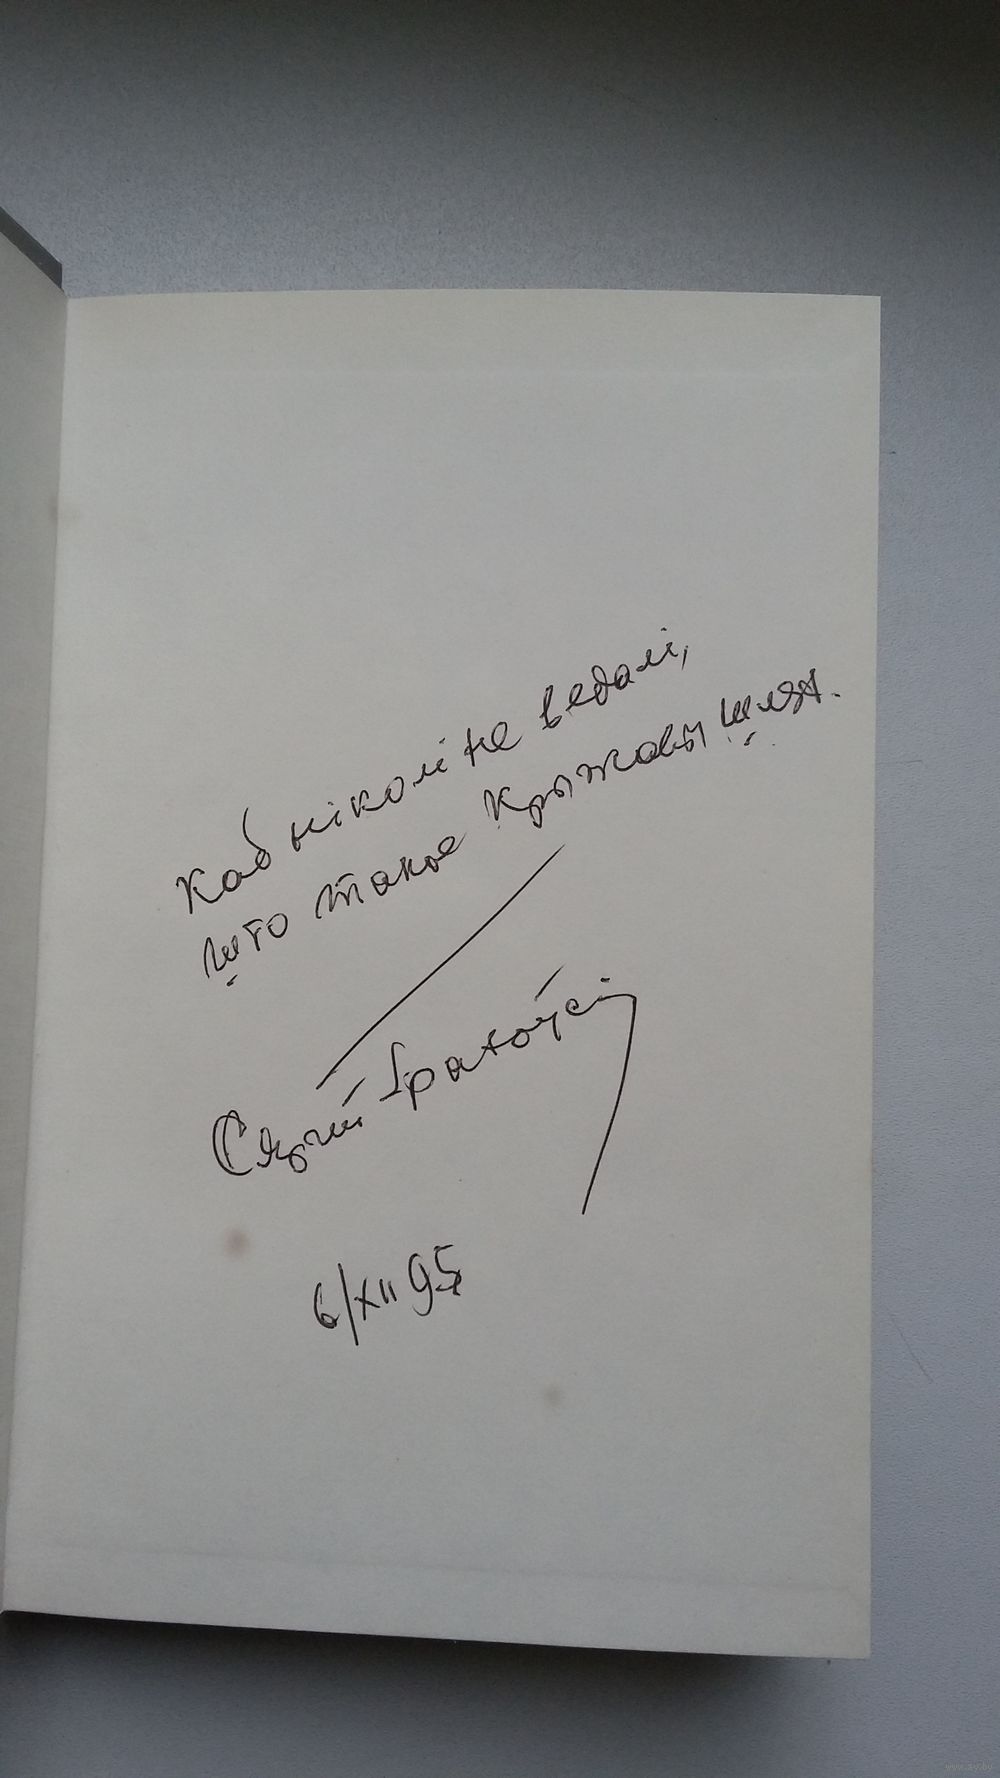 Каб ніколі не ведалі,
што такое Крыжовы шлях.
Сяргей Грахоўскі
6/XII 95
www.ay.by